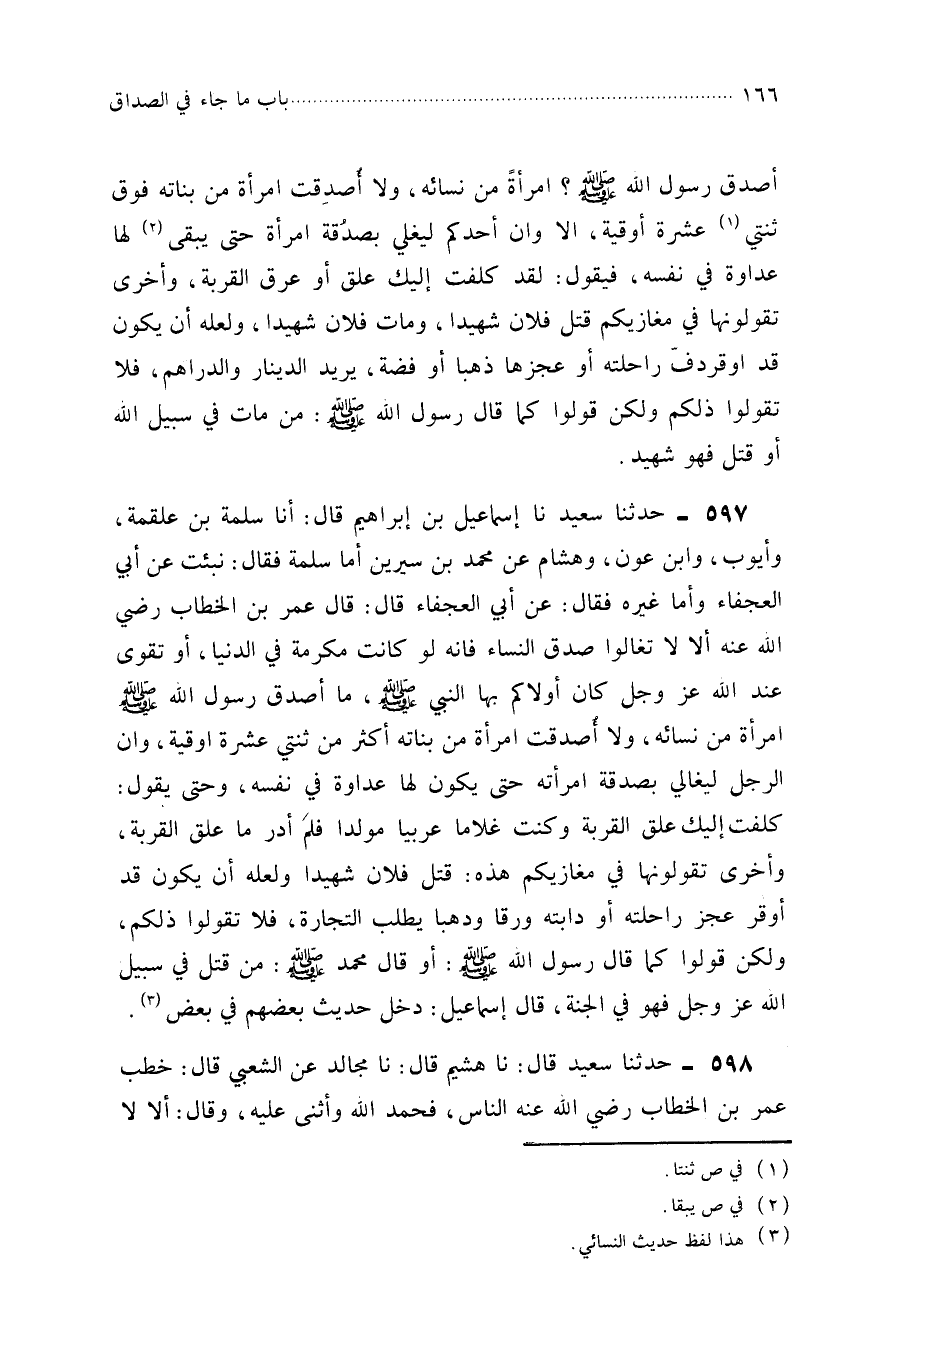 ١٦٦ ........................................ باب ما جاء في الصداق
أصدق رسول الله ﷺ ؟ امرأةً من نسائه، ولا أُصدِقت امرأة من بناته فوق
ثنتي (١) عشرة أوقية، الا وان أحدكم ليغلي بصدُقة امرأة حتى يبقى (٢) لها
عداوة في نفسه، فيقول: لقد كلفت إليك علق أو عرق القربة، وأخرى
تقولونها في مغازيكم قتل فلان شهيدا، ومات فلان شهيدا، ولعله أن يكون
قد اوقردفّ راحلته أو عجزها ذهبا أو فضة، يريد الدينار والدراهم، فلا
تقولوا ذلكم ولكن قولوا كما قال رسول الله ﷺ : من مات في سبيل الله
أو قتل فهو شهيد .
٥٩٧ ـ حدثنا سعيد نا إسماعيل بن إبراهيم قال: أنا سلمة بن علقمة،
وأيوب، وابن عون، وهشام عن محمد بن سيرين أما سلمة فقال: نبئت عن أبي
العجفاء وأما غيره فقال: عن أبي العجفاء قال: قال عمر بن الخطاب رضي
الله عنه ألا لا تغالوا صدق النساء فانه لو كانت مكرمة في الدنيا، أو تقوى
عند الله عز وجل كان أولاكم بها النبي ﷺ ، ما أصدق رسول الله ﷺ
امرأة من نسائه، ولا أُصدقت امرأة من بناته أكثر من ثنتي عشرة اوقية، وان
الرجل ليغالي بصدقة امرأته حتى يكون لها عداوة في نفسه، وحتى يقول:
كلفت إليك علق القربة وكنت غلاما عربيا مولدا فلَم أدر ما علق القربة،
وأخرى تقولونها في مغازيكم هذه: قتل فلان شهيدا ولعله أن يكون قد
أوقر عجز راحلته أو دابته ورقا ودهبا يطلب التجارة، فلا تقولوا ذلكم،
ولكن قولوا كما قال رسول الله ﷺ : أو قال محمد ﷺ : من قتل في سبيل
الله عز وجل فهو في الجنة، قال إسماعيل: دخل حديث بعضهم في بعض (٣) .
٥٩٨ ـ حدثنا سعيد قال: نا هشيم قال: نا مجالد عن الشعبي قال: خطب
عمر بن الخطاب رضي الله عنه الناس، فحمد الله وأثنى عليه، وقال: ألا لا
(١) في ص ثنتا .
(٢) في ص يبقا .
(٣) هذا لفظ حديث النسائي .